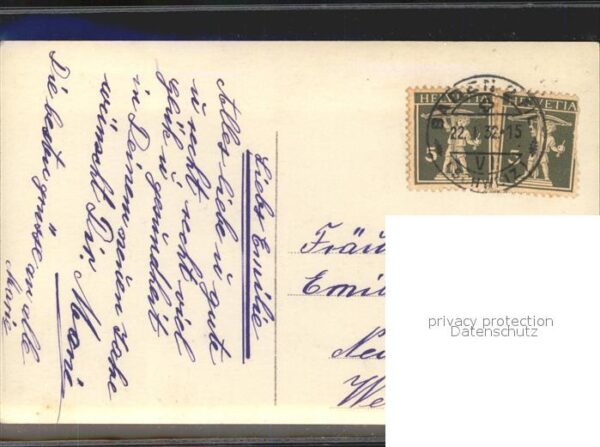 Liebe Emilie
Alles liebe u gute
u recht recht viel
glück u gesundheit
in Deinem neuen Jahre
wünscht Dir, Marie
Die besten grüsse an alle
Marie
HELVETIA
HELVETIA
5
5
BADEN
22. I. 32-15
V
Fräu
Emi
Ne
We
privacy protection
Datenschutz